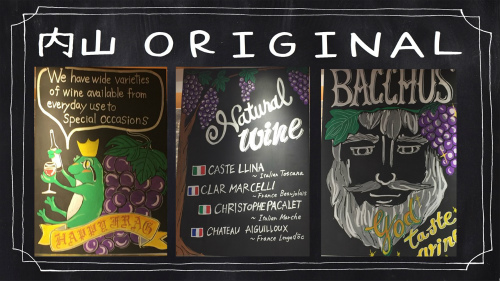 内山 ORIGINAL
We have wide varieties
of wine available from
everyday use to
Special occasions
HAPPY FRAG
Natural
wine
CASTE LLINA
~ Italian Toscana
CLAR MARCELLI
~ France Beaujolais
CHRISTOPHE PACALET
~ Italian Marche
CHATEAU AIGUILLOUX
~ France Langedoc
BACCHUS
God
taste